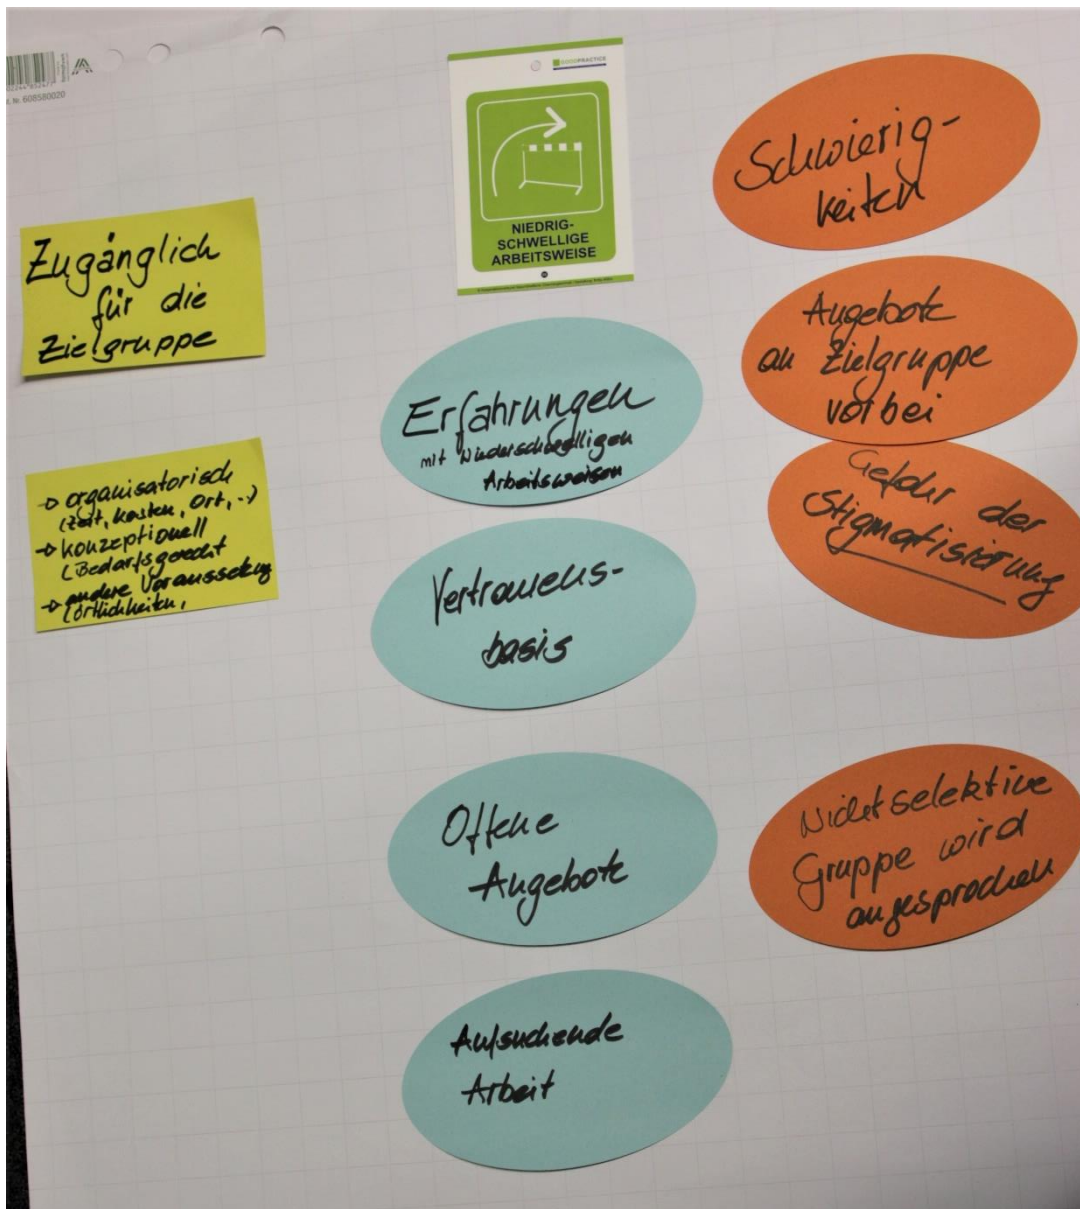 Nr. 608580020
GOODPRACTICE
NIEDRIG-
SCHWELLIGE
ARBEITSWEISE
Zugänglich
für die
Zielgruppe
→ organisatorisch
(Zeit, Kosten, Ort, ..)
→ konzeptionell
(Bedarfsgerecht
→ andere Voraussetzung
(Örtlichkeiten,
Erfahrungen
mit niederschwelligen
Arbeitsweisen
Vertrauens-
basis
Offene
Angebote
Aufsuchende
Arbeit
Schwierig-
keiten
Angebote
an Zielgruppe
vorbei
Gefahr der
Stigmatisierung
Nicht selektive
Gruppe wird
angesprochen